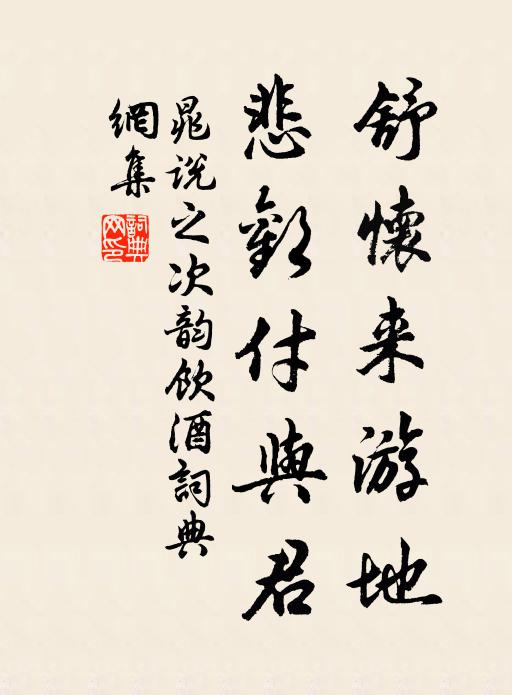 舒懷来游地
悲歡付與君
晁說之次韵飲酒詞典
網集
詞典
网印